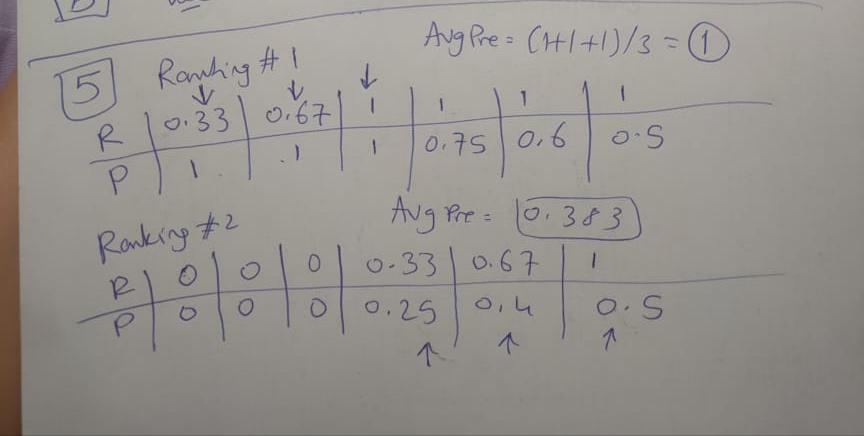 5 Ranking #1 Avg Pre = (1+1+1)/3 = 1
R 0.33 0.67 1 1 1 1
P 1 1 1 0.75 0.6 0.5
Ranking #2 Avg Pre = 0.383
R 0 0 0 0.33 0.67 1
P 0 0 0 0.25 0.4 0.5